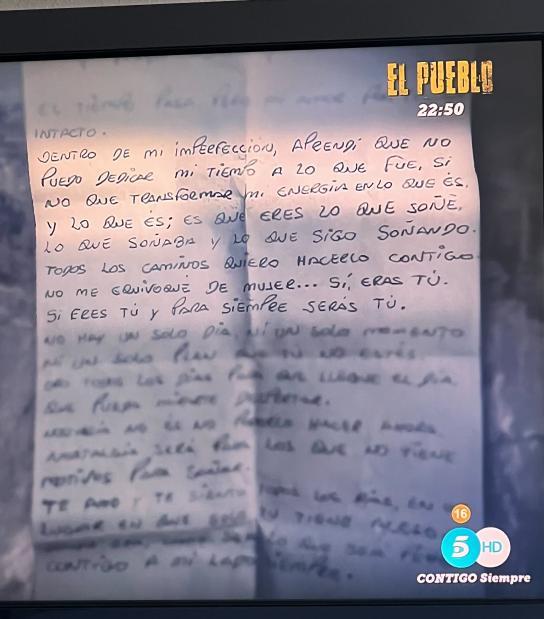 EL PUEBLO
22:50
EL TIEMPO PASA PERO MI AMOR
INTACTO.
DENTRO DE MI IMPERFECCIÓN, APRENDÍ QUE NO
PUEDO DEDICAR MI TIEMPO A LO QUE FUE, SI
NO QUE TRANSFORMAR MI ENERGÍA EN LO QUE ÉS.
Y LO QUE ÉS; ES QUE ERES LO QUE SOÑÉ,
LO QUE SOÑABA Y LO QUE SIGO SOÑANDO.
TODOS LOS CAMINOS QUIERO HACERLO CONTIGO.
NO ME EQUIVOQUÉ DE MUJER... SÍ, ERAS TÚ.
SI ERES TÚ Y PARA SIEMPRE SERÁS TÚ.
NO HAY UN SOLO DÍA, NI UN SOLO MOMENTO
NI UN SOLO PLAN QUE TÚ NO ESTÉS.
TODOS LOS DÍAS PARA QUE LLEGUE EL DÍA
QUE PUEDA
NO ES NO HACER AHORA
NOSTALGIA SERÁ PARA LOS QUE NO TIENE
MOTIVOS PARA SOÑAR.
TE AMO Y TE SIENTO TODOS LOS DÍAS, EN
LUGAR EN QUE
CONTIGO A MI LADO SIEMPRE.
16
5 HD
CONTIGO Siempre